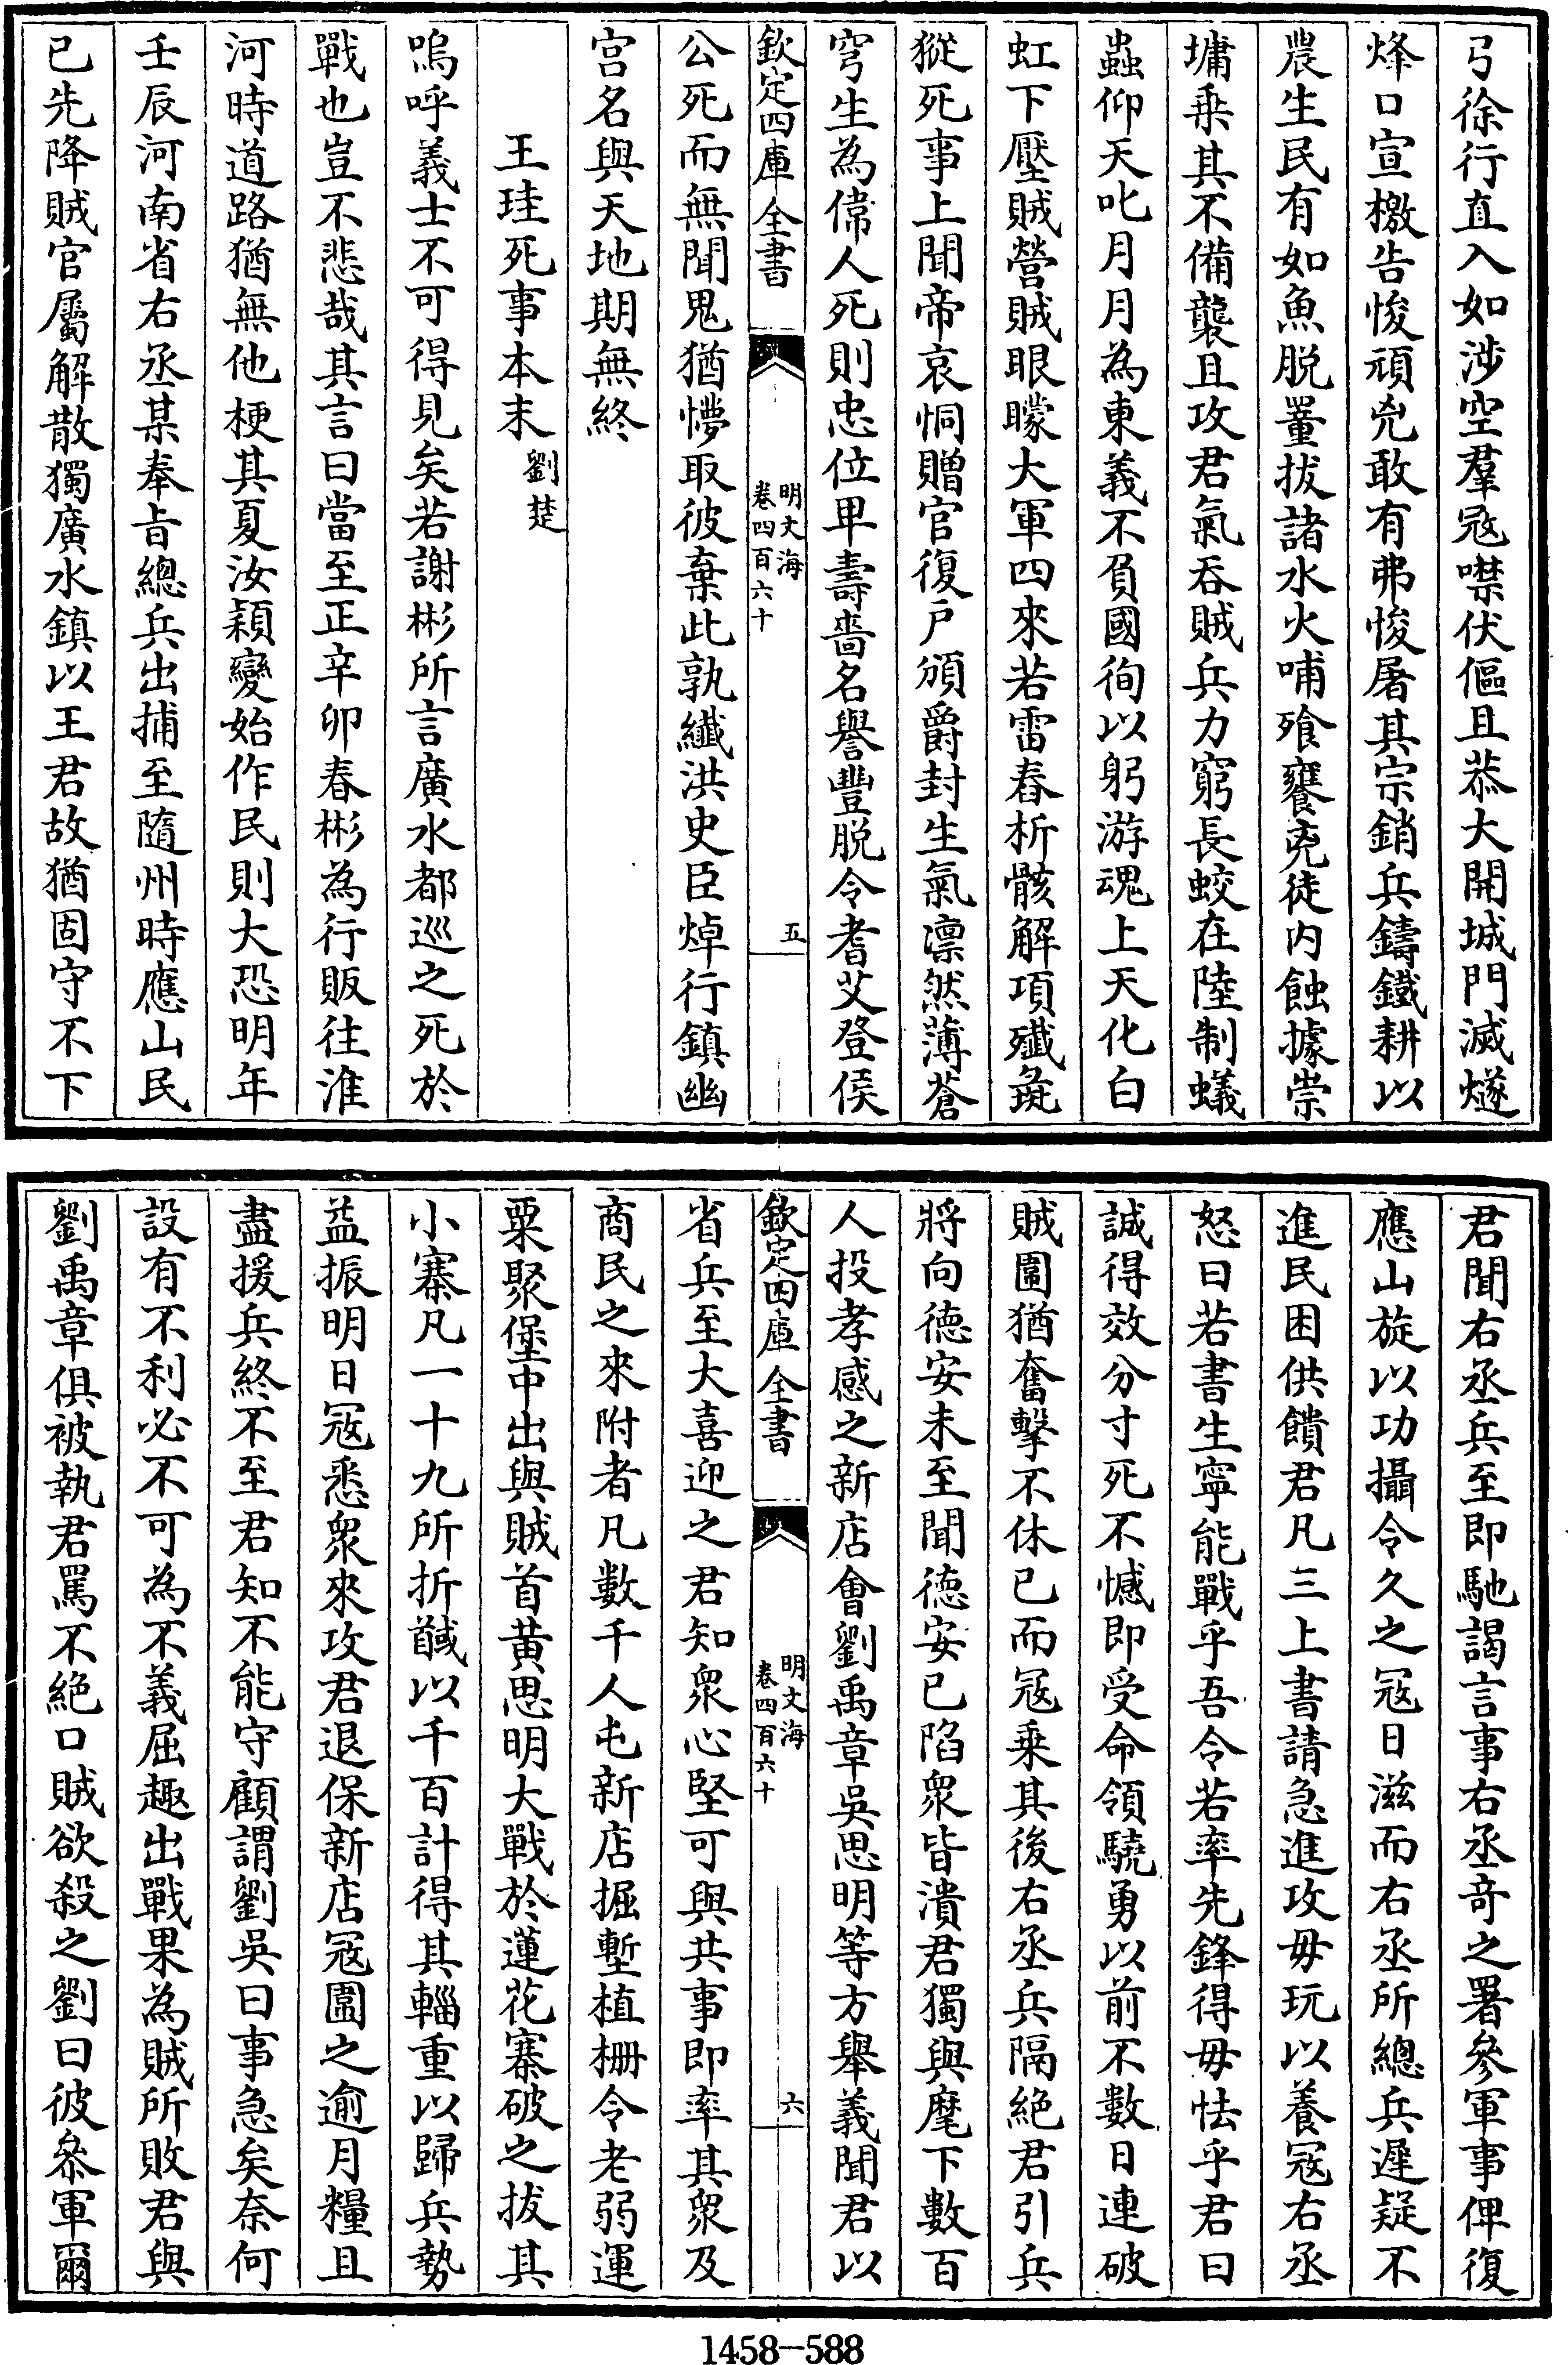 弓徐行直入如涉空羣㓂噤伏傴且恭大開城門滅燧
烽口宣檄告悛頑兇敢有弗悛屠其宗銷兵鑄鐵耕以
農生民有如魚脱罿拔諸水火哺飱饔兇徒内蝕據崇
墉乗其不備襲且攻君氣吞賊兵力窮長蛟在陸制蟻
蟲仰天叱月月為東義不負國徇以躬游魂上天化白
虹下壓賊營賊眼矇大軍四來若雷舂析骸解項殱彘
豵死事上聞帝哀恫贈官復戸頒爵封生氣凛然薄蒼
穹生為偉人死則忠位卑壽嗇名譽豐脱令耆艾登侯
欽定四庫全書
明文海
卷四百六十
五
公死而無聞鬼猶懜取彼棄此孰纎洪史臣焯行鎮幽
宫名與天地期無終
王珪死事本末 劉楚
嗚呼義士不可得見矣若謝彬所言廣水都巡之死於
戰也豈不悲哉其言曰當至正辛卯春彬為行販往淮
河時道路猶無他梗其夏汝潁變始作民則大恐明年
壬辰河南省右丞某奉㫖總兵出捕至隨州時應山民
已先降賊官屬解散獨廣水鎮以王君故猶固守不下
君聞右丞兵至即馳謁言事右丞竒之署參軍事俾復
應山旋以功攝令久之㓂日滋而右丞所總兵遲疑不
進民困供饋君凡三上書請急進攻毋玩以養㓂右丞
怒曰若書生寧能戰乎吾令若率先鋒得毋怯乎君曰
誠得效分寸死不憾即受命領驍勇以前不數日連破
賊圍猶奮擊不休已而㓂乗其後右丞兵隔絶君引兵
將向徳安未至聞徳安已陷衆皆潰君獨與麾下數百
人投孝感之新店會劉禹章吳思明等方舉義聞君以
欽定四庫全書
明文海
卷四百六十
六
省兵至大喜迎之君知衆心堅可與共事即率其衆及
商民之來附者凡數千人屯新店掘塹植柵令老弱運
粟聚堡中出與賊首黄思明大戰於蓮花寨破之拔其
小寨凡一十九所折馘以千百計得其輜重以歸兵勢
益振明日㓂悉衆來攻君退保新店㓂圍之逾月糧且
盡援兵終不至君知不能守顧謂劉吳曰事急矣奈何
設有不利必不可為不義屈趣出戰果為賊所敗君與
劉禹章俱被執君罵不絶口賊欲殺之劉曰彼叅軍爾
1458-588